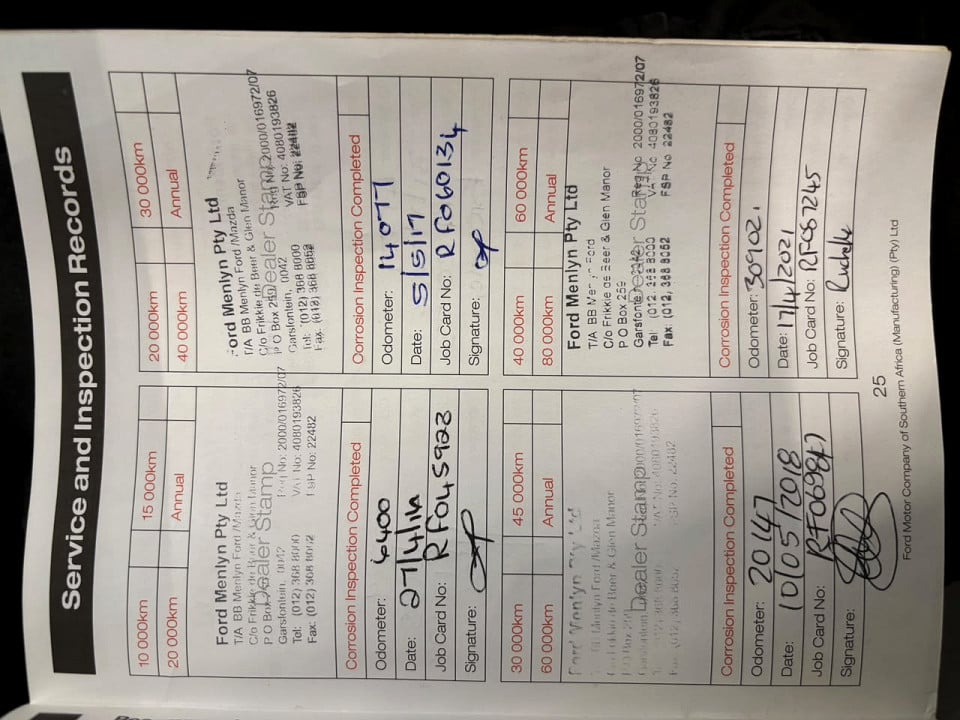 Service and Inspection Records
10 000km 15 000km
20 000km Annual
Ford Menlyn Pty Ltd
T/A BB Menlyn Ford/Mazda
C/o Frikkie de Beer & Glen Manor
P O Box Dealer Stamp
Garsfontein, 0042 Reg No: 2000/016972/07
Tel: (012) 368 8000 VAT No: 4080193826
Fax: (012) 368 8062 FSP No: 22482
Corrosion Inspection Completed
Odometer: 6400
Date: 27/4/
Job Card No: RF045923
Signature:
20 000km 30 000km
40 000km Annual
Ford Menlyn Pty Ltd
T/A BB Menlyn Ford/Mazda
C/o Frikkie de Beer & Glen Manor
P O Box Dealer Stamp Reg No: 2000/016972/07
Garsfontein, 0042 VAT No: 4080193826
Tel: (012) 368 8000 FSP No: 22482
Fax: (012) 368 8062
Corrosion Inspection Completed
Odometer: 14077
Date: 5/5/17
Job Card No: RF060134
Signature:
30 000km 45 000km
60 000km Annual
Ford Menlyn Pty Ltd
T/A BB Menlyn Ford/Mazda
C/o Frikkie de Beer & Glen Manor
P O Box
Garsfontein Dealer Stamp 2000/016972/07
VAT No: 4080193826
FSP No: 22482
Corrosion Inspection Completed
Odometer: 20147
Date: 10/05/2018
Job Card No: RF069847
Signature:
40 000km 60 000km
80 000km Annual
Ford Menlyn Pty Ltd
T/A BB Menlyn Ford
C/o Frikkie de Beer & Glen Manor
P O Box 259
Garsfontein Dealer Stamp Reg No 2000/016972/07
Tel: (012) 368 8000 VAT No 4080193826
Fax: (012) 368 8062 FSP No 22482
Corrosion Inspection Completed
Odometer: 30902
Date: 17/4/2021
Job Card No: RF087245
Signature:
25
Ford Motor Company of Southern Africa (Manufacturing) (Pty) Ltd